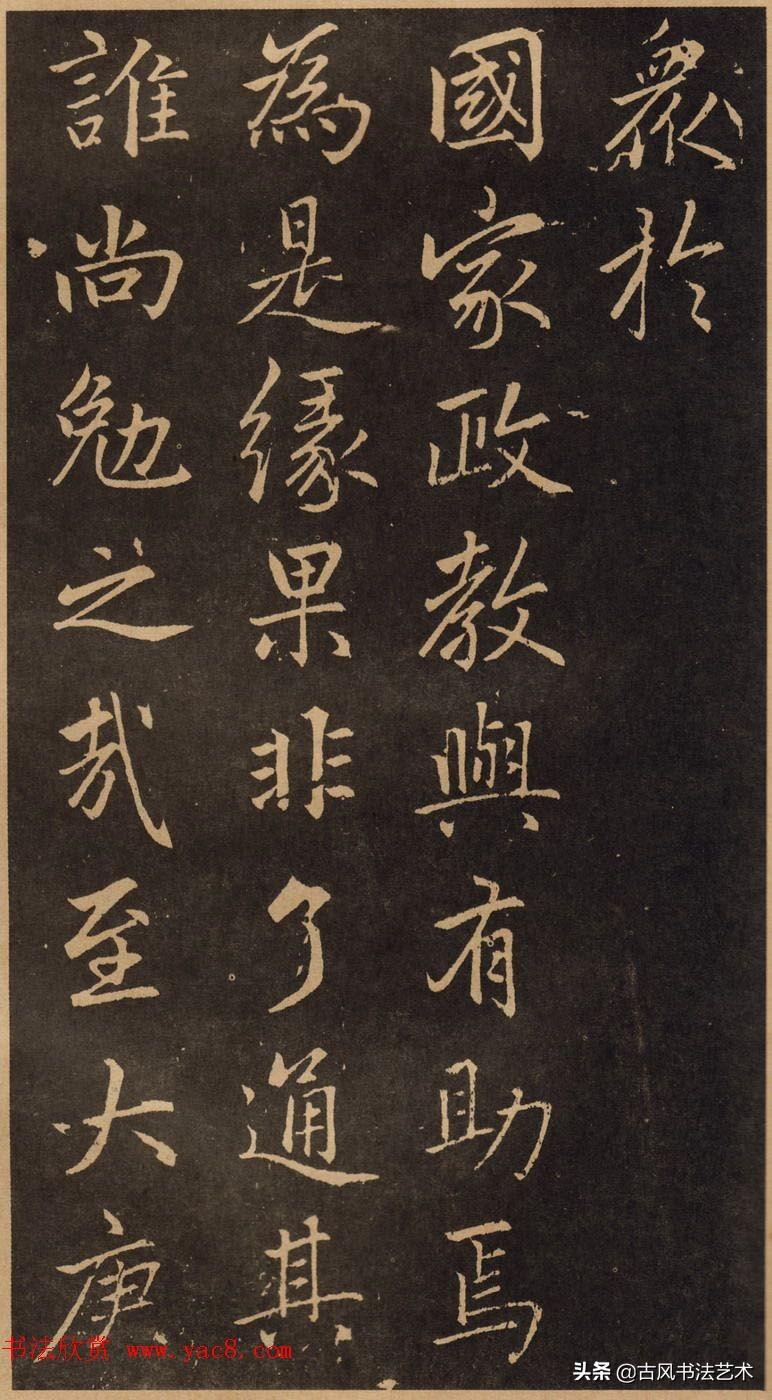 衆於
國家政教與有助焉
為是緣果非了通其
誰尚勉之哉至大庚
书法欣赏 www.yac8.com
头条 @古风书法艺术